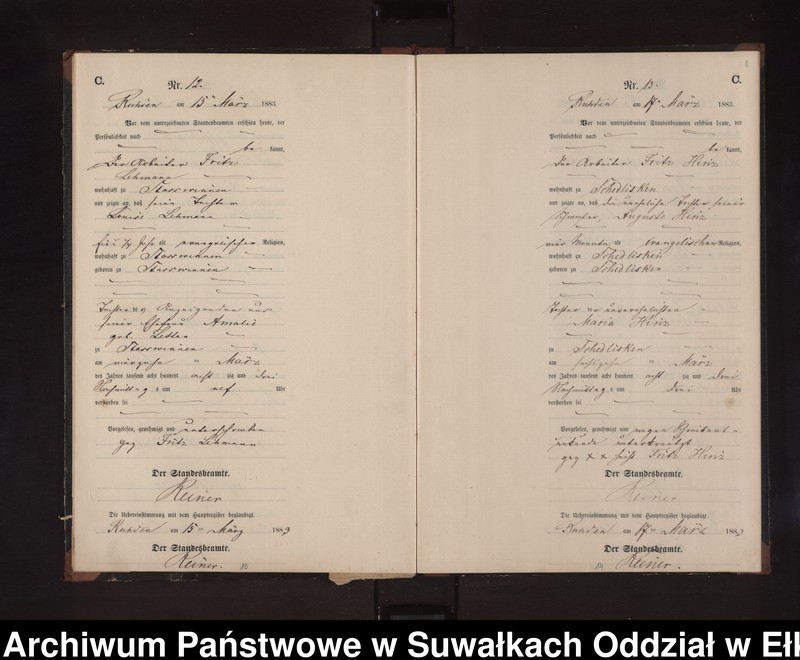 C.
Nr. 12.
Ruhden am 15ten März 1883.
Vor dem unterzeichneten Standesbeamten erschien heute, der
Persönlichkeit nach
be kannt,
der Arbeiter Fritz
Lehmann
wohnhaft zu Stasswinnen
und zeigte an, daß seine Tochter
Louise Lehmann
Jahr alt evangelischer Religion,
wohnhaft zu Stasswinnen
geboren zu Stasswinnen
Tochter des Anzeigenden und
seiner Ehefrau Amalie
geb.
zu Stasswinnen
am März
des Jahres tausend acht hundert acht zig und drei
Nachmittags um elf Uhr
verstorben sei
Vorgelesen, genehmigt und unterschrieben
gez Fritz Lehmann
Der Standesbeamte.
Reiner
Die Uebereinstimmung mit dem Hauptregister beglaubigt.
Ruhden am 15ten März 1883
Der Standesbeamte.
Reiner.
Nr. 13.
C.
Ruhden am 17ten März 1883.
Vor dem unterzeichneten Standesbeamten erschien heute, der
Persönlichkeit nach
be kannt,
der Arbeiter Fritz Heinz
wohnhaft zu Schedlisken
und zeigte an, daß die uneheliche Tochter seiner
Schwester, Auguste Heinz
vier Monate alt evangelischer Religion,
wohnhaft zu Schedlisken
geboren zu Schedlisken
Tochter der unverehelichten
Maria Heinz
zu Schedlisken
am sechszehn ten März
des Jahres tausend acht hundert acht zig und drei
Nachmittags um drei Uhr
verstorben sei
Vorgelesen, genehmigt und wegen Schreibens-
unkunde unterkreuzt
gez x x x Fritz Heinz
Der Standesbeamte.
Reiner
Die Uebereinstimmung mit dem Hauptregister beglaubigt.
Ruhden am 17ten März 1883
Der Standesbeamte.
Reiner.
Archiwum Państwowe w Suwałkach Oddział w Ełk